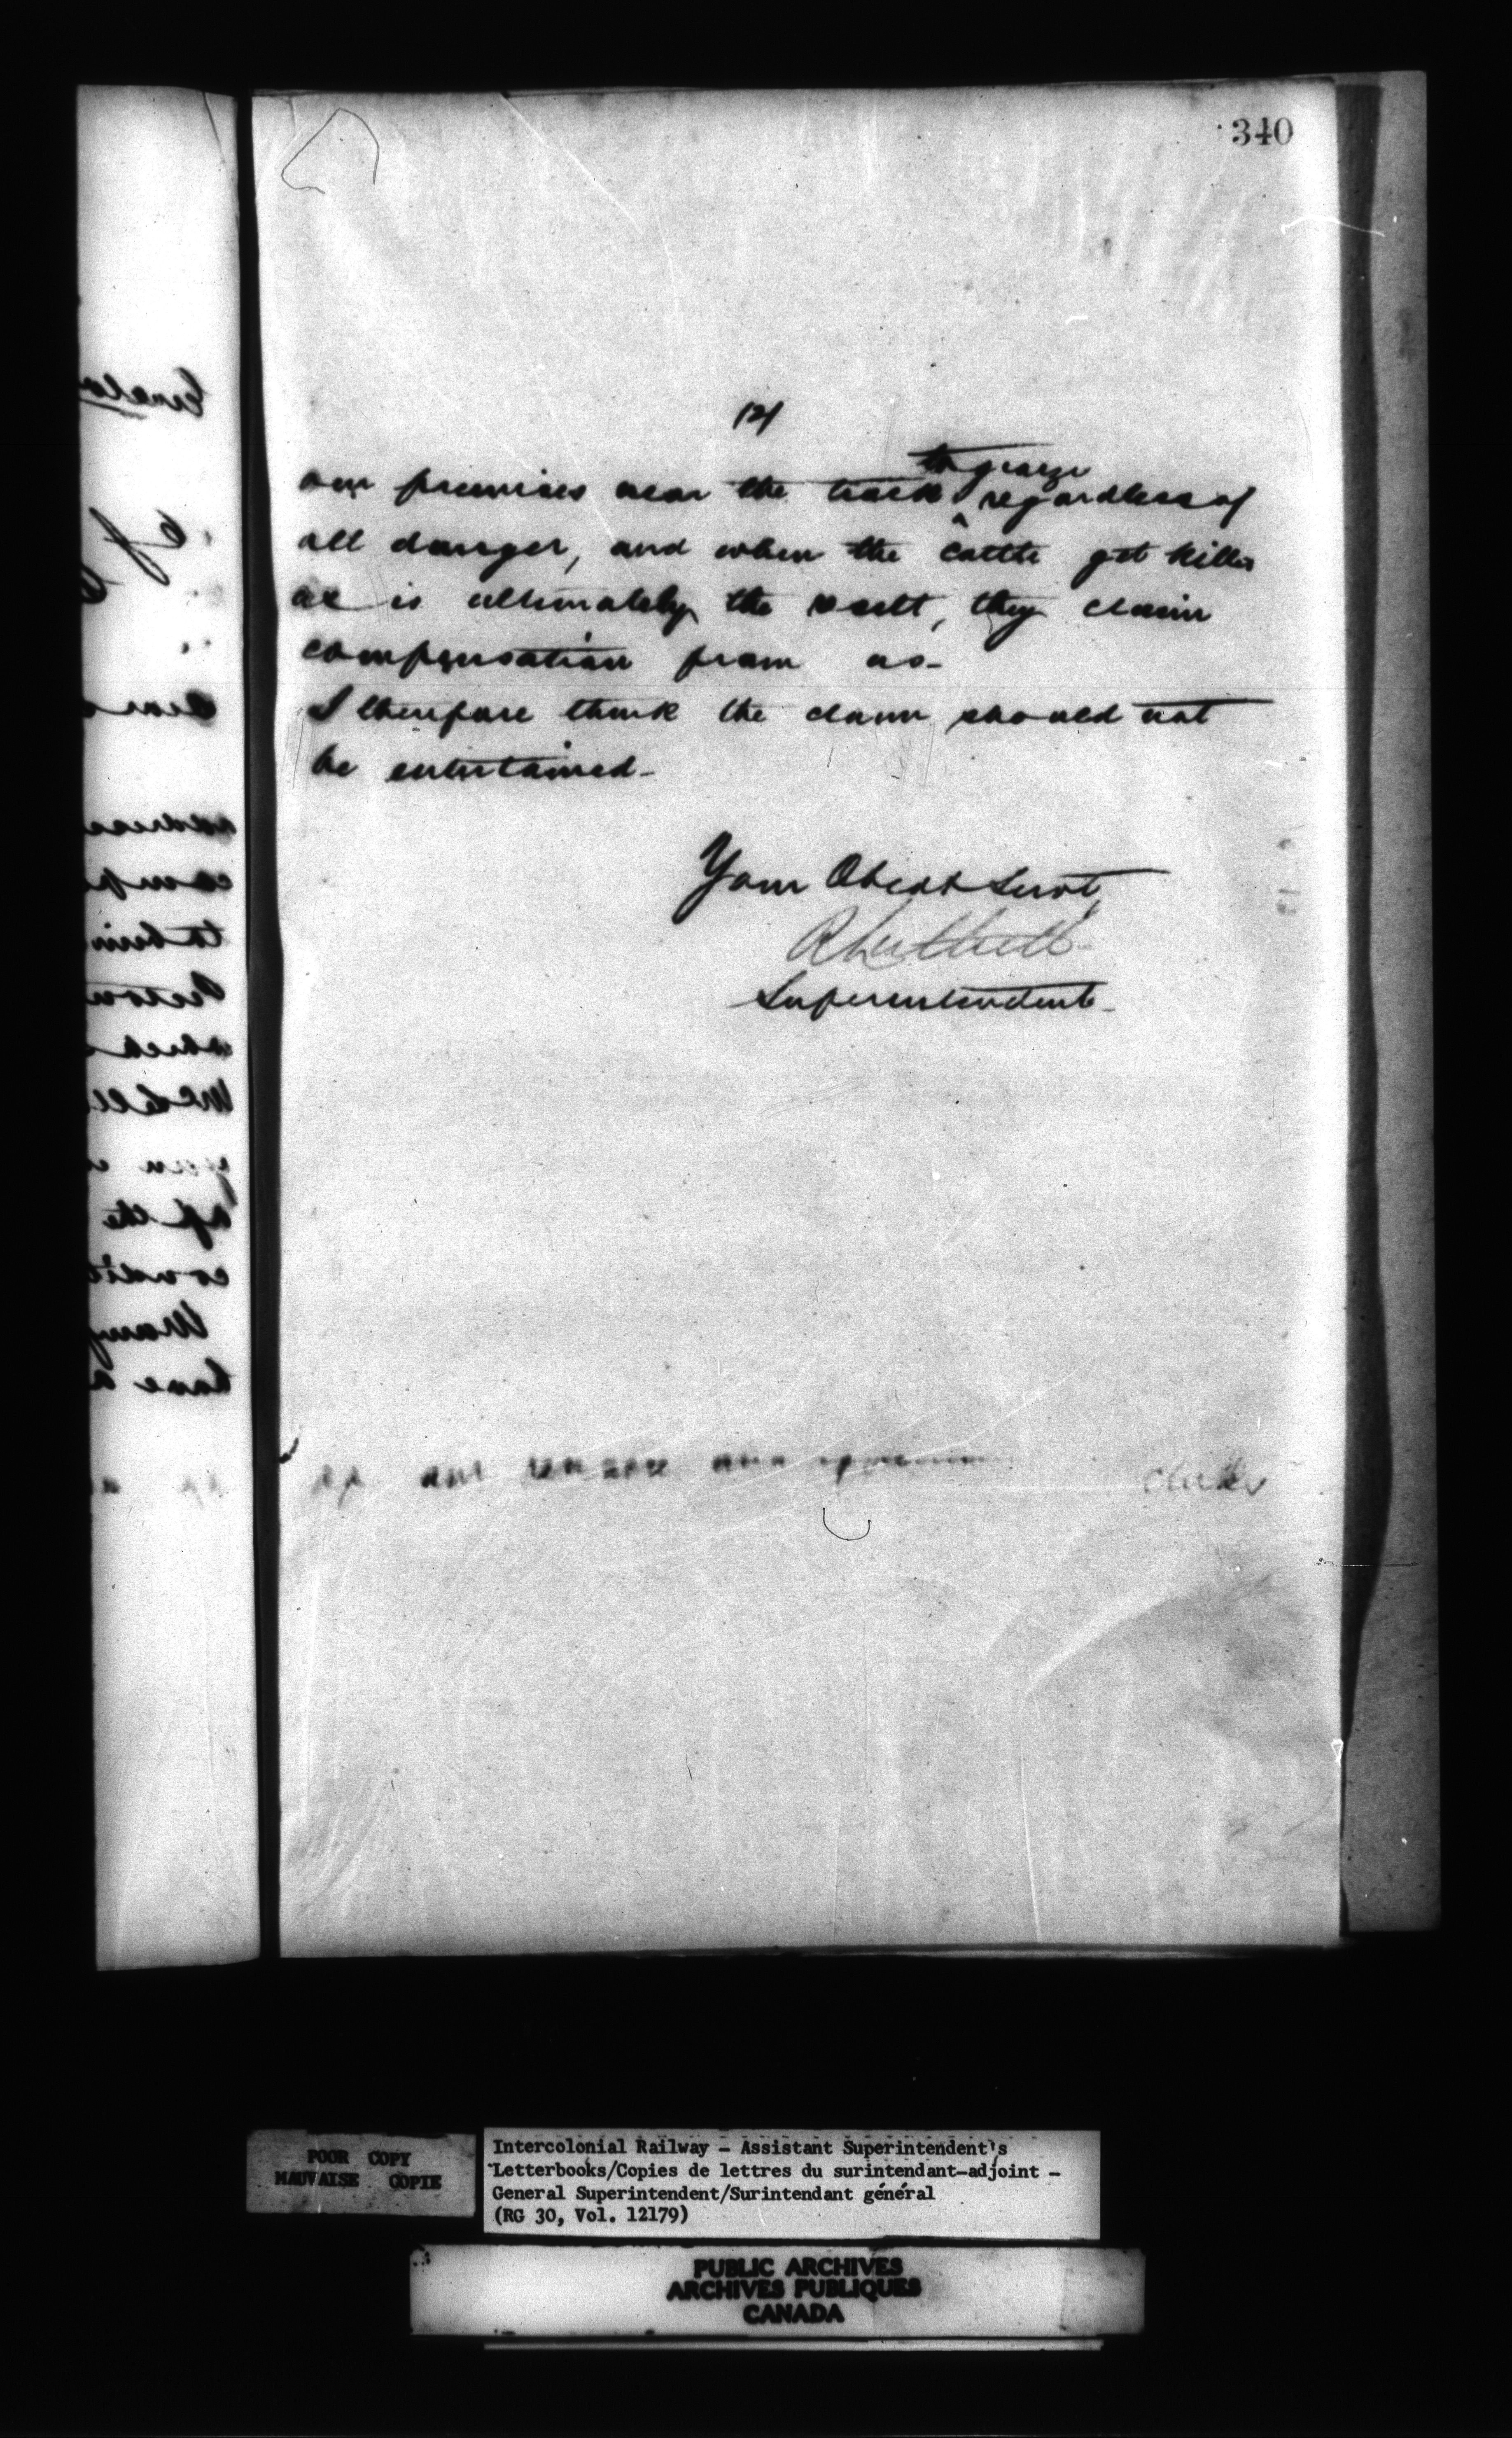 340
(2)
our premises near the track ^ to graze regardless of
all danger, and when the cattle get killed
as is ultimately the result, they claim
compensation from us-
I therefore think the claim should not
be entertained-
Your Obedt Servt
Superintendent-
POOR COPY
MAUVAISE COPIE
Intercolonial Railway - Assistant Superintendent's
Letterbooks/Copies de lettres du surintendant-adjoint -
General Superintendent/Surintendant général
(RG 30, Vol. 12179)
PUBLIC ARCHIVES
ARCHIVES PUBLIQUES
CANADA